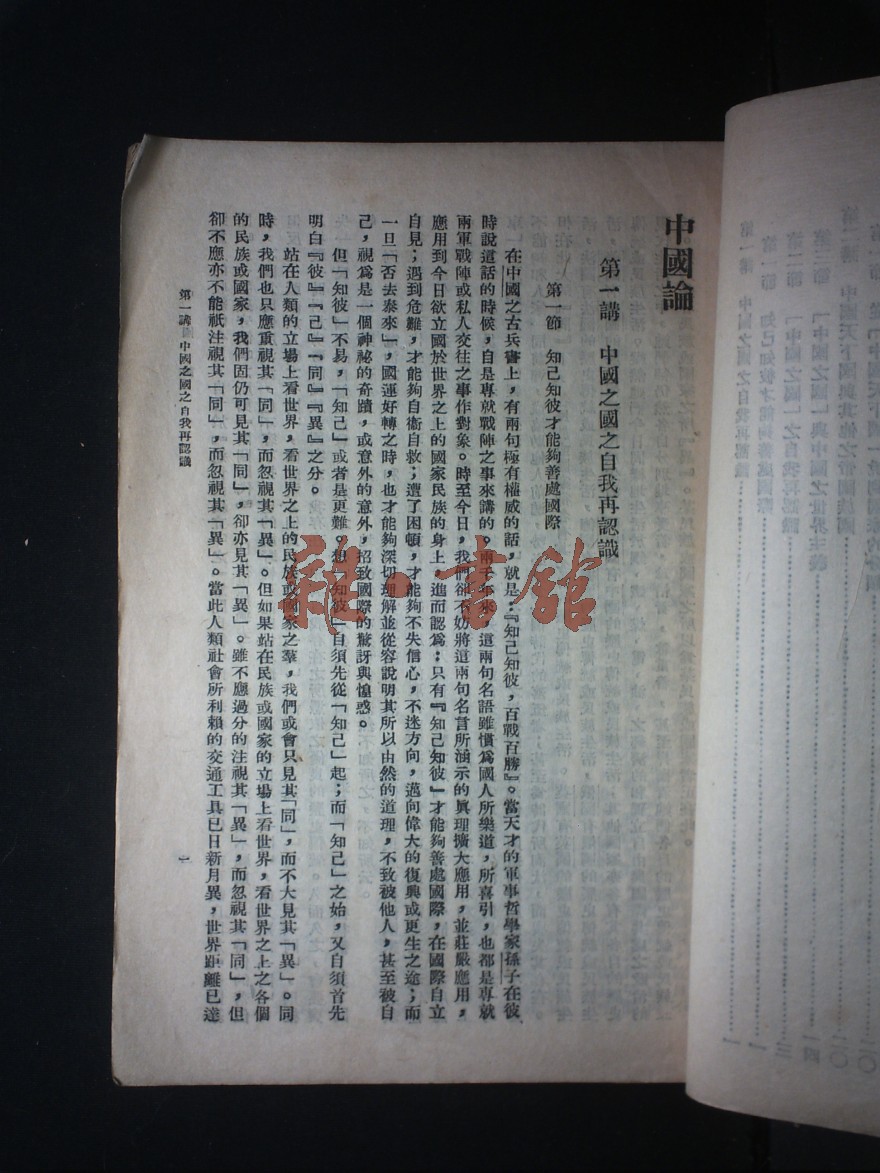 中國論
第一講　中國之國之自我再認識
第一節　知己知彼才能夠善處國際
在中國之古兵書上，有兩句極有權威的話，就是：『知己知彼，百戰百勝』。當天才的軍事哲學家孫子在彼
時說這話的時候，自是專就戰陣之事來講的。兩千年來，這兩句名語雖慣為國人所樂道，所喜引，也都是專就
兩軍戰陣或私人交往之事作對象。時至今日，我們卻不妨將這兩句名言所涵示的真理擴大應用，並莊嚴應用，
應用到今日欲立國於世界之上的國家民族的身上，進而認為：只有『知己知彼』才能夠善處國際，在國際自立
自見；遇到危難，才能夠自衛自救；遭了困頓，才能夠不失信心，不迷方向，邁向偉大的復興或更生之途；而
一旦「否去泰來」，國運好轉之時，也才能夠深切理解並從容說明其所以由然的道理，不致被他人，甚至被自
己，視為是一個神祕的奇蹟，或意外的意外，招致國際的驚訝與惶惑。
但「知彼」不易，「知己」或者是更難。想「知彼」自須先從「知己」起；而「知己」之始，又自須首先
明白『彼』『己』『同』『異』之分。
站在人類的立場上看世界，看世界之上的民族或國家之羣，我們或會只見其「同」，而不大見其「異」。同
時，我們也只應重視其「同」，而忽視其「異」。但如果站在民族或國家的立場上看世界，看世界之上之各個
的民族或國家，我們固仍可見其「同」，卻亦見其「異」。雖不應過分的注視其「異」，而忽視其「同」，但
卻不應亦不能祇注視其「同」，而忽視其「異」。當此人類社會所利賴的交通工具已日新月異，世界距離已達
第一講　中國之國之自我再認識
一
雜·書館